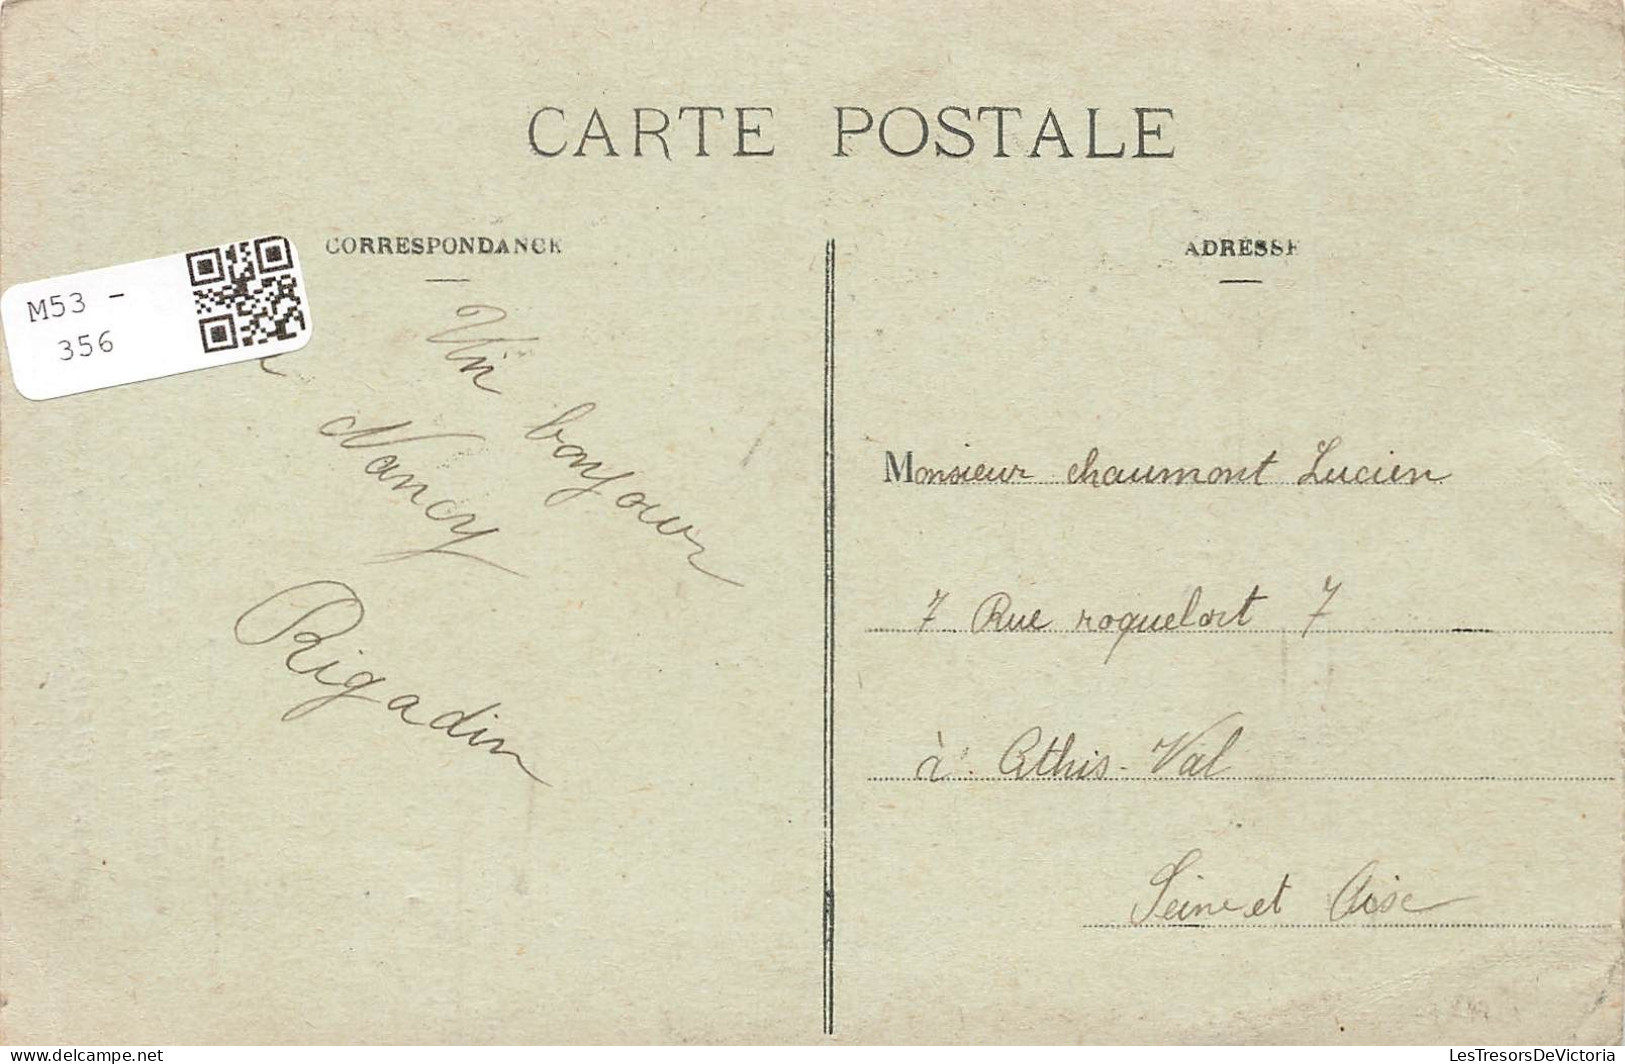 CARTE POSTALE
CORRESPONDANCE
ADRESSE
M53 -
356
Un bonjour
Nancy
Rigadin
Monsieur chaumont Lucien
7 Rue roquelort 7
à Athis-Val
Seine et Oise
LesTresorsDeVictoria
www.delcampe.net